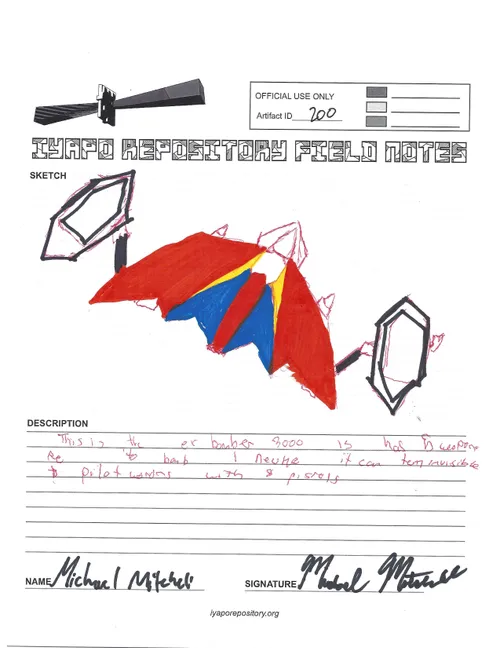 OFFICIAL USE ONLY
Artifact ID 200
IYAPO REPOSITORY FIELD NOTES
SKETCH
DESCRIPTION
This is the ex bomber 3000 is has
to bomb 1 it can
pilot with 8 pistols
NAME Michael Mitchell
SIGNATURE Michael Mitchell
iyaporepository.org